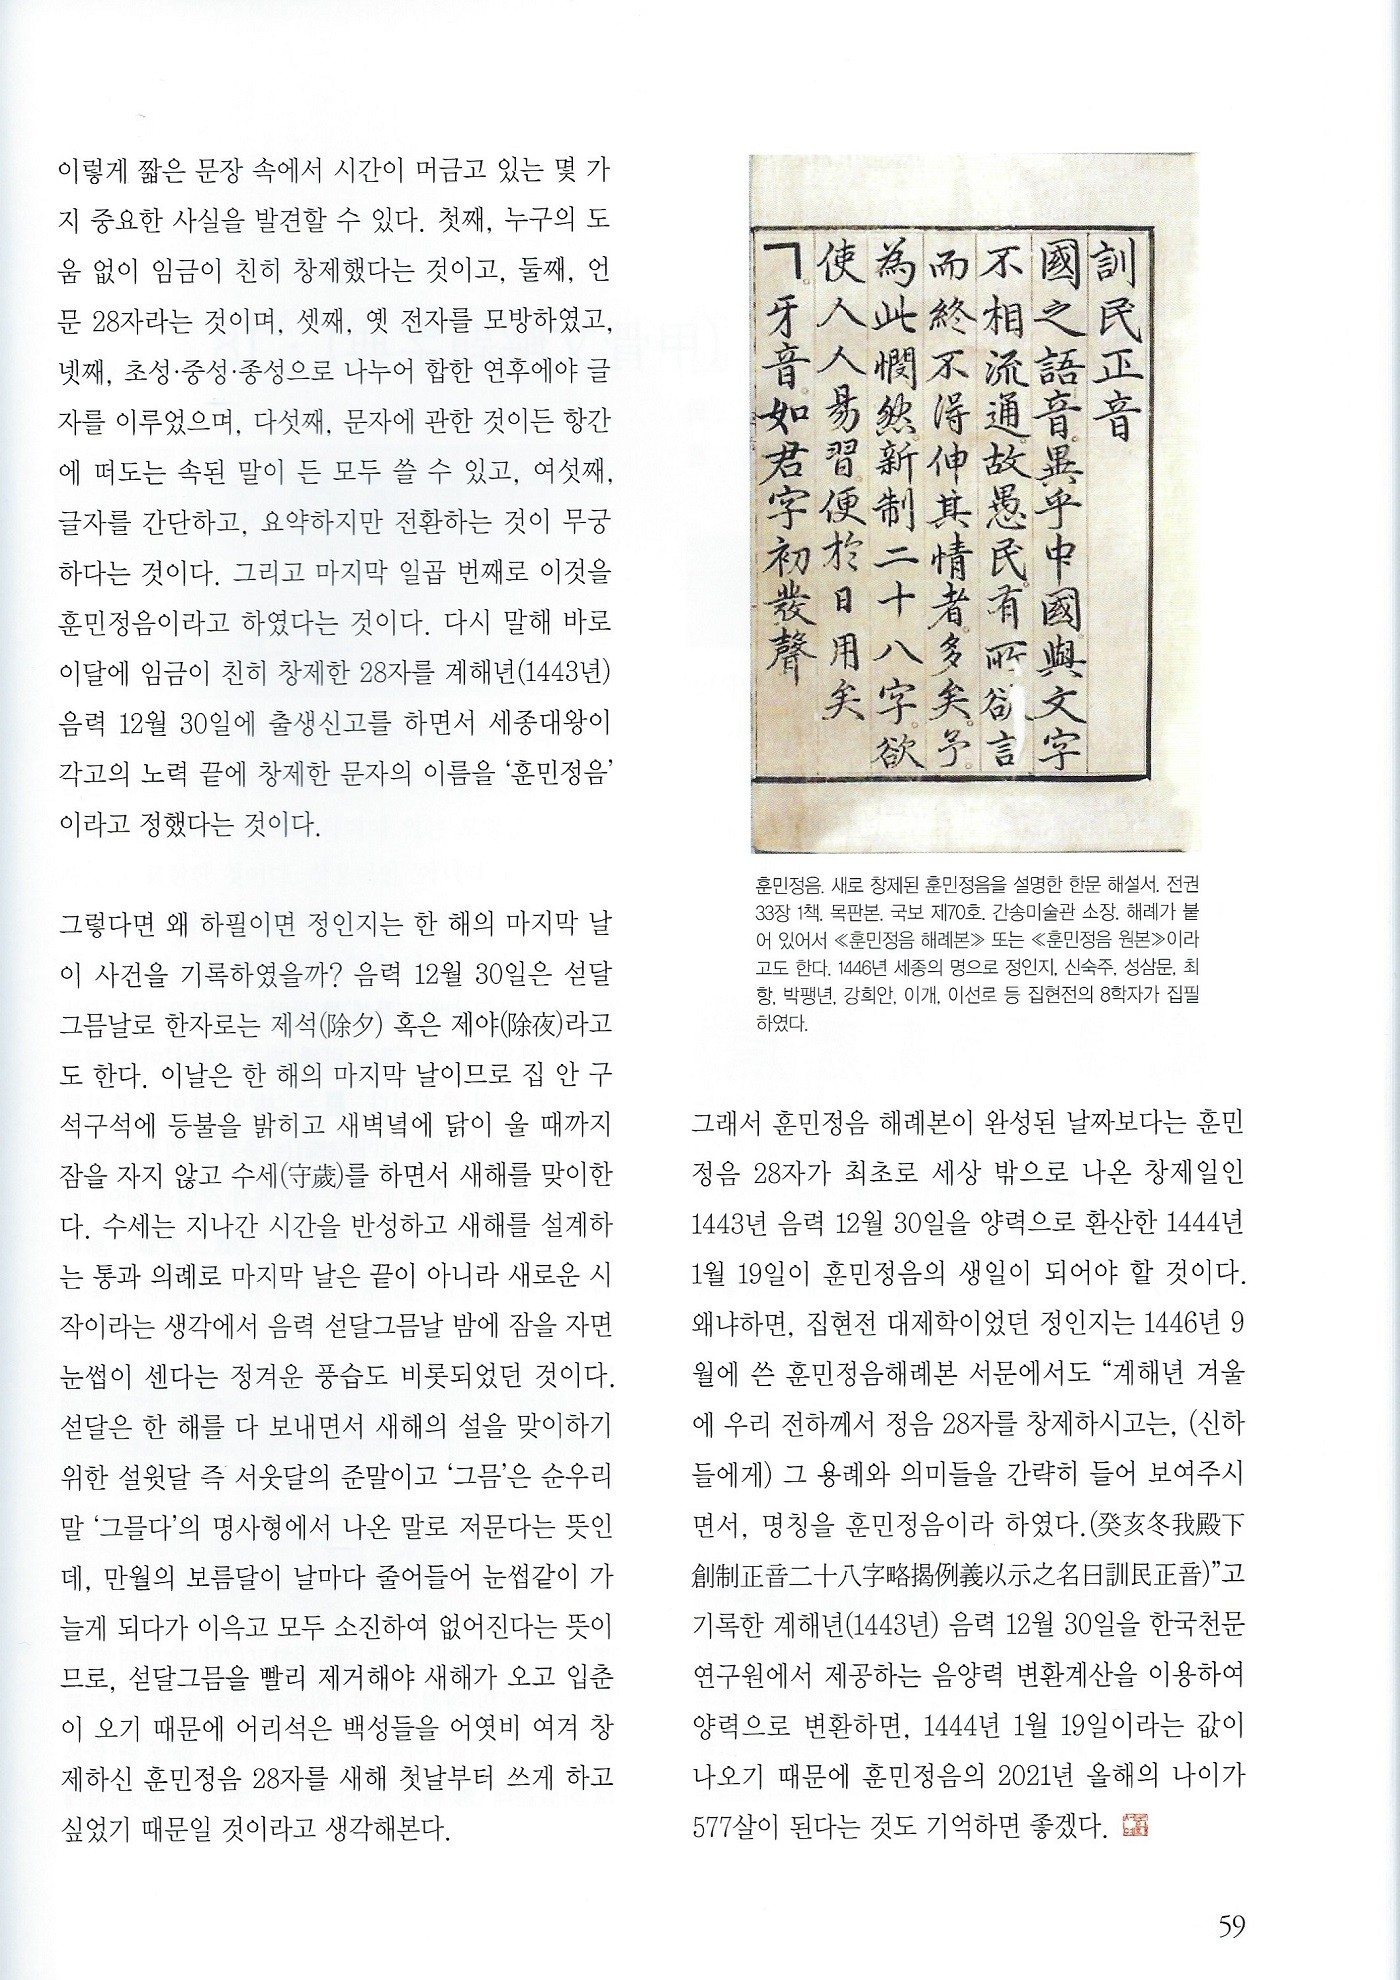 이렇게 짧은 문장 속에서 시간이 머금고 있는 몇 가
지 중요한 사실을 발견할 수 있다. 첫째, 누구의 도
움 없이 임금이 친히 창제했다는 것이고, 둘째, 언
문 28자라는 것이며, 셋째, 옛 전자를 모방하였고,
넷째, 초성·중성·종성으로 나누어 합한 연후에야 글
자를 이루었으며, 다섯째, 문자에 관한 것이든 항간
에 떠도는 속된 말이 든 모두 쓸 수 있고, 여섯째,
글자를 간단하고, 요약하지만 전환하는 것이 무궁
하다는 것이다. 그리고 마지막 일곱 번째로 이것을
훈민정음이라고 하였다는 것이다. 다시 말해 바로
이달에 임금이 친히 창제한 28자를 계해년(1443년)
음력 12월 30일에 출생신고를 하면서 세종대왕이
각고의 노력 끝에 창제한 문자의 이름을 ‘훈민정음’
이라고 정했다는 것이다.
그렇다면 왜 하필이면 정인지는 한 해의 마지막 날
이 사건을 기록하였을까? 음력 12월 30일은 섣달
그믐날로 한자로는 제석(除夕) 혹은 제야(除夜)라고
도 한다. 이날은 한 해의 마지막 날이므로 집 안 구
석구석에 등불을 밝히고 새벽녘에 닭이 울 때까지
잠을 자지 않고 수세(守歲)를 하면서 새해를 맞이한
다. 수세는 지나간 시간을 반성하고 새해를 설계하
는 통과 의례로 마지막 날은 끝이 아니라 새로운 시
작이라는 생각에서 음력 섣달그믐날 밤에 잠을 자면
눈썹이 센다는 정겨운 풍습도 비롯되었던 것이다.
섣달은 한 해를 다 보내면서 새해의 설을 맞이하기
위한 설윗달 즉 서웃달의 준말이고 ‘그믐’은 순우리
말 ‘그믈다’의 명사형에서 나온 말로 저문다는 뜻인
데, 만월의 보름달이 날마다 줄어들어 눈썹같이 가
늘게 되다가 이윽고 모두 소진하여 없어진다는 뜻이
므로, 섣달그믐을 빨리 제거해야 새해가 오고 입춘
이 오기 때문에 어리석은 백성들을 어엿비 여겨 창
제하신 훈민정음 28자를 새해 첫날부터 쓰게 하고
싶었기 때문일 것이라고 생각해본다.
訓民正音
國之語音異乎中國與文字
不相流通故愚民有所欲言
而終不得伸其情者多矣予
為此憫然新制二十八字欲
使人人易習便於日用矣
ㄱ牙音如君字初發聲
훈민정음. 새로 창제된 훈민정음을 설명한 한문 해설서. 전권
33장 1책. 목판본. 국보 제70호. 간송미술관 소장. 해례가 붙
어 있어서 ≪훈민정음 해례본≫ 또는 ≪훈민정음 원본≫이라
고도 한다. 1446년 세종의 명으로 정인지, 신숙주, 성삼문, 최
항, 박팽년, 강희안, 이개, 이선로 등 집현전의 8학자가 집필
하였다.
그래서 훈민정음 해례본이 완성된 날짜보다는 훈민
정음 28자가 최초로 세상 밖으로 나온 창제일인
1443년 음력 12월 30일을 양력으로 환산한 1444년
1월 19일이 훈민정음의 생일이 되어야 할 것이다.
왜냐하면, 집현전 대제학이었던 정인지는 1446년 9
월에 쓴 훈민정음해례본 서문에서도 “계해년 겨울
에 우리 전하께서 정음 28자를 창제하시고는, (신하
들에게) 그 용례와 의미들을 간략히 들어 보여주시
면서, 명칭을 훈민정음이라 하였다.(癸亥冬我殿下
創制正音二十八字略揭例義以示之名曰訓民正音)”고
기록한 계해년(1443년) 음력 12월 30일을 한국천문
연구원에서 제공하는 음양력 변환계산을 이용하여
양력으로 변환하면, 1444년 1월 19일이라는 값이
나오기 때문에 훈민정음의 2021년 올해의 나이가
577살이 된다는 것도 기억하면 좋겠다.
59